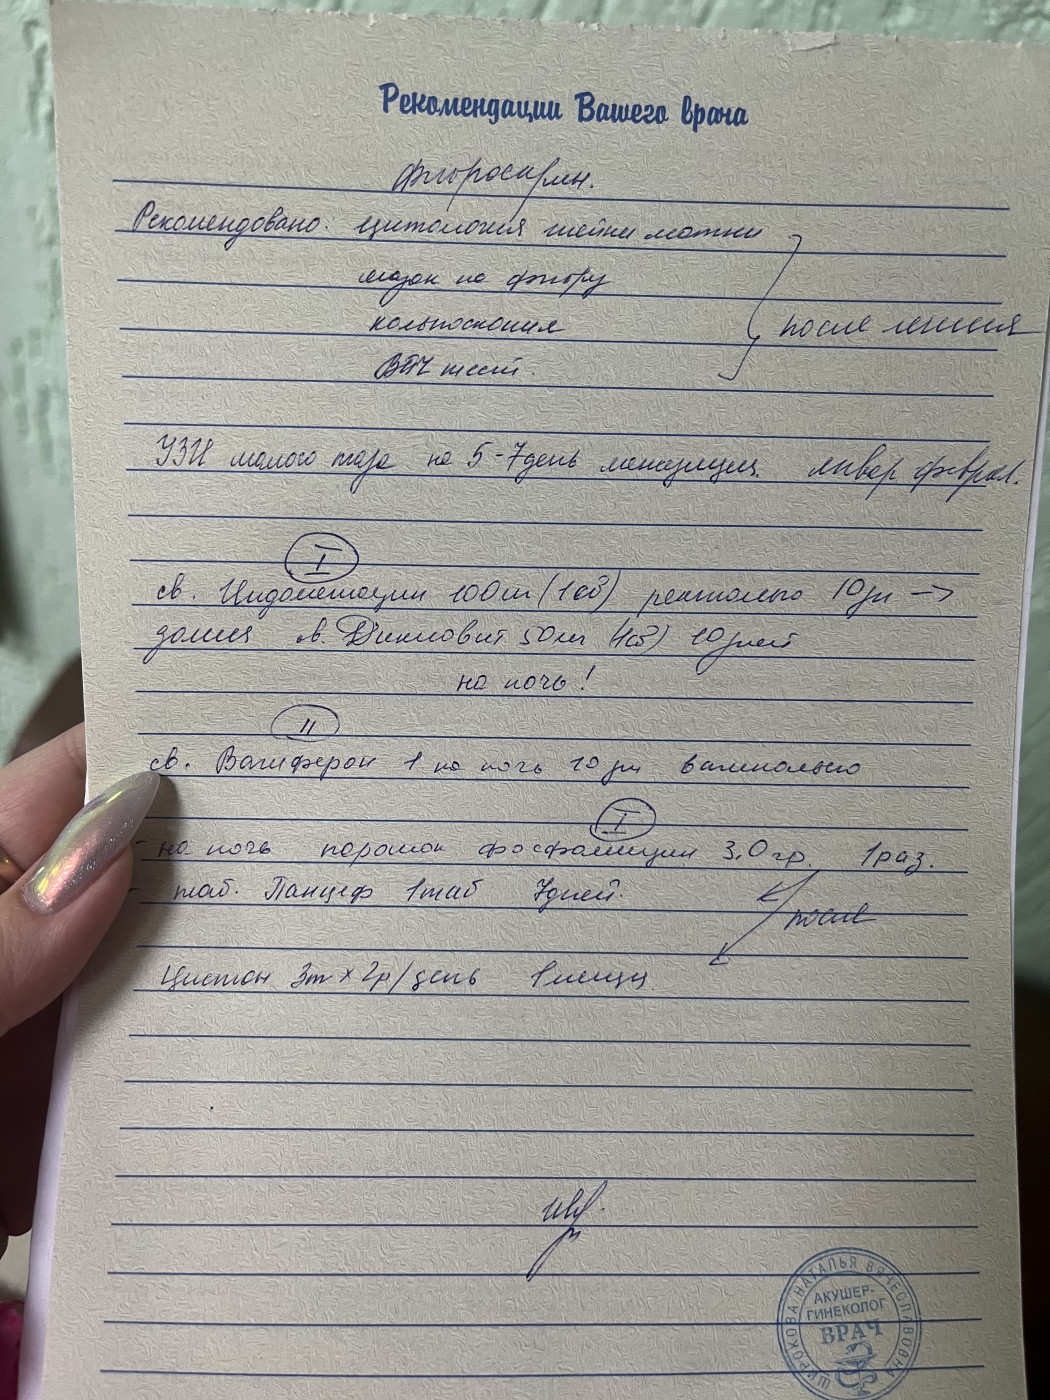 Рекомендации Вашего врача
Флороскрин.
Рекомендовано: цитология шейки матки
мазок на флору
кольпоскопия
после лечения
ВПЧ тест.
УЗИ малого таза на 5-7 день менструации январ феврал.
I
св. Индометацин 100мг (1св) ректально 10дн →
далее св. Дикловит 50мг (1св) 10 дней
на ночь!
II
св. Вагиферон 1 на ночь 10 дн вагинально
I
- на ночь порошок фосфомицин 3,0 гр. 1 раз.
- таб. Панцеф 1 таб 7 дней.
после
Цистон 3т x 2р/день 1 месяц
ШИРОКОВА НАТАЛЬЯ ВЯЧЕСЛАВОВНА
АКУШЕР-
ГИНЕКОЛОГ
ВРАЧ